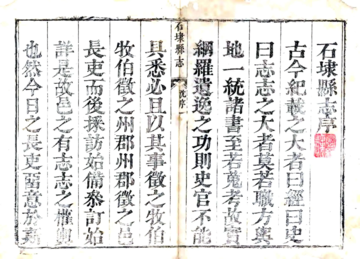 石埭縣志序
古今紀載之大者曰經曰史
曰志志之大者莫若職方輿
地一統諸書至若蒐考故實
網羅遺逸之功則史官不能
具悉必且以其事徵之牧伯
牧伯徵之州郡州郡徵之邑
長吏而後採訪始備叅訂始
詳是故邑之有志志之權輿
也然今日之長吏留意於斯
石埭縣志